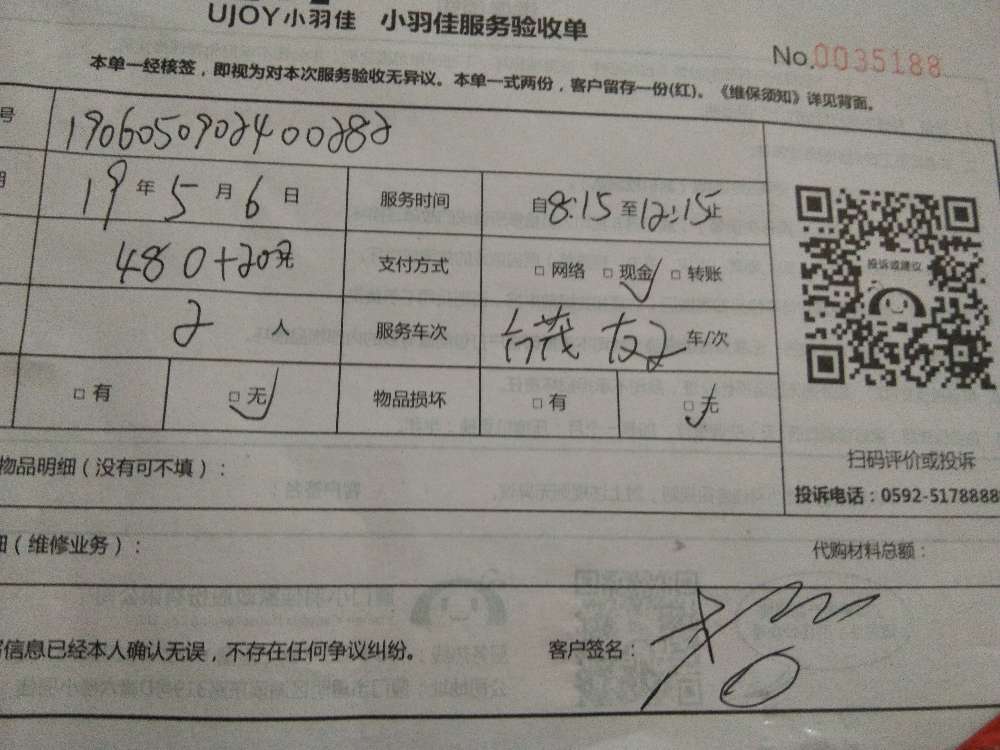 UJOY小羽佳 小羽佳服务验收单
No.0035188
本单一经核签，即视为对本次服务验收无异议。本单一式两份，客户留存一份(红)。《维保须知》详见背面。
号 1906050902400282
期 19年5月6日 服务时间 自8:15至12:15止
480+20元 支付方式 □网络 □现金 □转账
2人 服务车次 车/次
□有 □无 物品损坏 □有 □无
投诉或建议
扫码评价或投诉
投诉电话：0592-5178888
物品明细（没有可不填）：
细（维修业务）： 代购材料总额：
写信息已经本人确认无误，不存在任何争议纠纷。 客户签名：